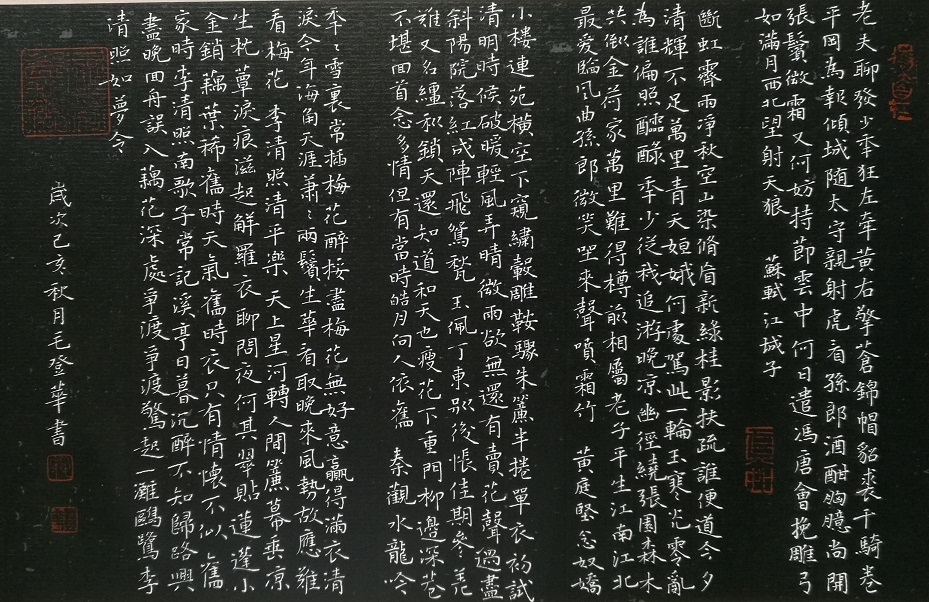 老夫聊發少年狂左牽黃右擎蒼錦帽貂裘千騎卷
平岡為報傾城隨太守親射虎看孫郎酒酣胸臆尚開
張鬢微霜又何妨持節雲中何日遣馮唐會挽雕弓
如滿月西北望射天狼 蘇軾 江城子
斷虹霽雨淨秋空山染脩眉新綠桂影扶疏誰便道今夕
清輝不足萬里青天姮娥何處駕此一輪玉寒光零亂
為誰偏照醽醁年少從我追游晚凉幽徑繞張園森木
共倒金荷家萬里難得樽前相屬老子平生江南江北
最愛臨風曲孫郎微笑坐來聲噴霜竹 黃庭堅念奴嬌
小樓連苑橫空下窺繡轂雕鞍驟朱簾半捲單衣初試
清明時候破暖輕風弄晴微雨欲無還有賣花聲過盡
斜陽院落紅成陣飛鴛甃 玉佩丁東別後悵佳期參差
難又名韁利鎖天還知道和天也瘦花下重門柳邊深巷
不堪回首念多情但有當時皓月向人依舊 秦觀水龍吟
年〻雪裏常插梅花醉挼盡梅花無好意贏得滿衣清
淚今年海角天涯蕭〻兩鬢生華看取晚來風勢故應難
看梅花 李清照清平樂 天上星河轉人間簾幕垂凉
生枕簟淚痕滋起解羅衣聊問夜何其翠貼蓮蓬小
金銷藕葉稀舊時天氣舊時衣只有情懷不似舊
家時李清照南歌子常記溪亭日暮沉醉不知歸路興
盡晚回舟誤入藕花深處爭渡爭渡驚起一灘鷗鷺李
清照如夢令
歲次己亥秋月毛登華書